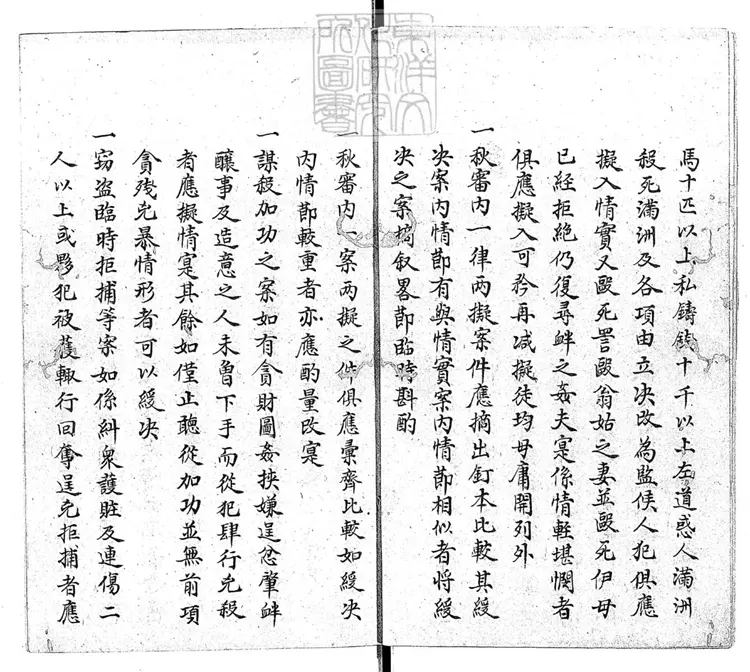 馬十匹以上私鑄錢十千以上左道惑人滿洲
殺死滿洲及各項由立决改為監候人犯俱應
擬入情實又毆死詈毆翁姑之妻並毆死伊母
已經拒絶仍復尋衅之姦夫寔係情輕堪憫者
俱應擬入可矜再减擬徒均毋庸開列外
一秋審内一律两擬案件應摘出釘本比較其緩
决案内情莭有與情實案内情莭相似者将緩
决之案摘叙畧莭臨時斟酌
一秋審内一案两擬之件俱應彚齊比較如緩决
内情莭較重者亦應酌量改寔
一謀殺加功之案如有貪財圖姦挾嫌逞忿肇衅
釀事及造意之人未曾下手而從犯肆行兇殺
者應擬情寔其餘如僅止聽從加功並無前項
貪殘兇暴情形者可以緩决
一窃盗臨時拒捕等案如係糾衆護賍及連傷二
人以上或夥犯被獲輙行回奪逞兇拒捕者應
東洋文
化研究
所圖書